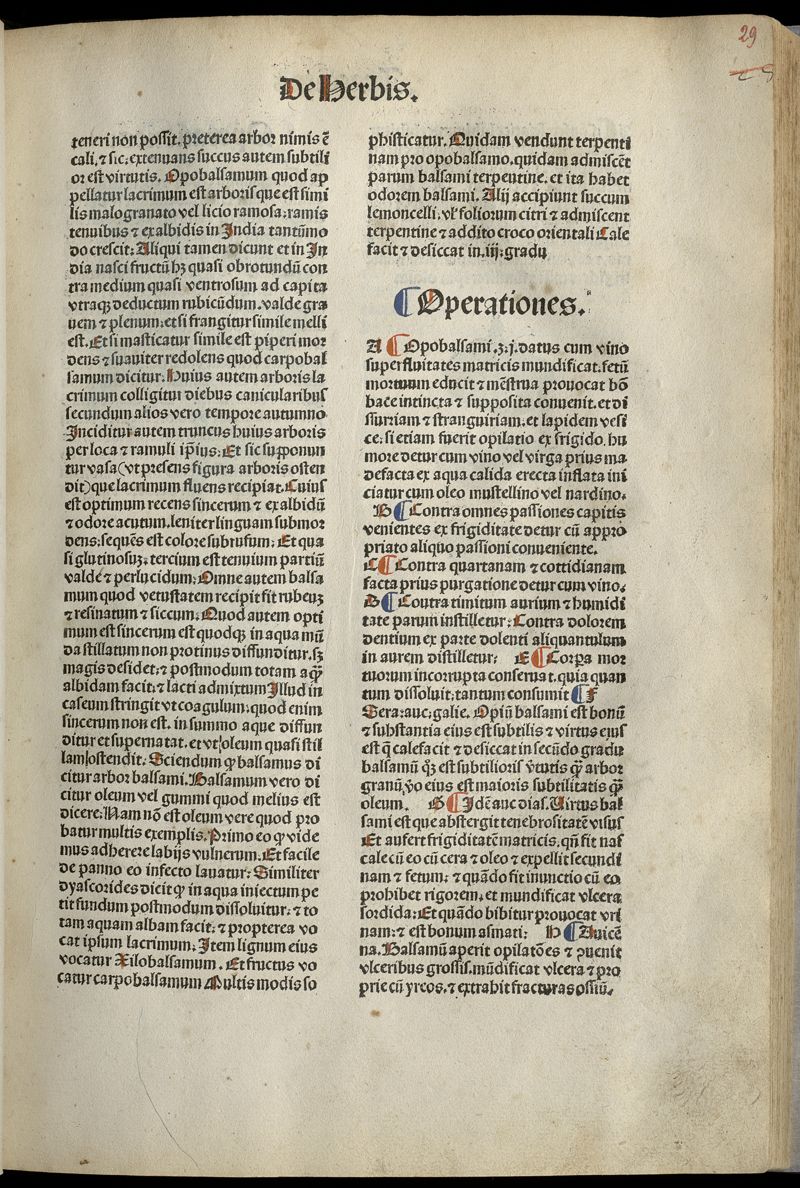 29
De Herbis.
teneri non possit. preterea arbor nimis ē
cali. ⁊ sic: extenuans succus autem subtili
or est virtutis. Opobalsamum quod ap
pellatur lacrimum est arboris que est simi
lis malogranato vel licio ramosa: ramis
tenuibus ⁊ exalbidis in India tantūmo
do crescit: Aliqui tamen dicunt et in In
dia nasci fructū hꝫ quasi obrotundū con
tra medium quasi ventrosum ad capita
vtraqꝫ deductum rubicūdum. valde gra
uem ⁊ plenum: et si frangitur simile melli
est. Et si masticatur simile est piperi mor
dens ⁊ suauiter redolens quod carpobal
samum dicitur. Huius autem arboris la
crimum colligitur diebus canicularibus
secundum alios vero tempore autumno
Inciditur autem truncus huius arboris
per loca ⁊ ramuli ip̄ius: Et sic supponun
tur vasa (vt presens figura arboris osten
dit) que lacrimum fluens recipiat. Cuius
est optimum recens sincerum ⁊ exalbidū
⁊ odore acutum. leniter linguam submor
dens: sequēs est colore subrufum: Et qua
si glutinosuꝫ. tercium est tenuium partiū
valde ⁊ perlucidum: Omne autem balsa
mum quod vetustatem recipit fit rubeuꝫ
⁊ resinatum ⁊ siccum: Quod autem opti
mum est sincerum est quodqꝫ in aqua mū
da stillatum non protinus diffunditur. sꝫ
magis desidet: ⁊ postmodum totam aqꝫ
albidam facit: ⁊ lacti admixtum Illud in
caseum stringit vt coagulum: quod enim
sincerum non est. in summo aque diffun
ditur et supernatat. et vt oleum quasi stil
lam ostendit. Sciendum ꝙ balsamus di
citur arbor balsami. Balsamum vero di
citur oleum vel gummi quod melius est
dicere. Nam nō est oleum vere quod pro
batur multis exemplis. Primo eo ꝙ vide
mus adherere labijs vulnerum. Et facile
de panno eo infecto lauatur: Similiter
dyascorides dicit ꝙ in aqua iniectum pe
tit fundum postmodum dissoluitur: ⁊ to
tam aquam albam facit: ⁊ propterea vo
cat ipsum lacrimum: Item lignum eius
vocatur Xilobalsamum. Et fructus vo
catur carpobalsamum Multis modis so
phisticatur. Quidam vendunt terpenti
nam pro opobalsamo. quidam admiscēt
parum balsami terpentine. et ita habet
odorem balsami. Alij accipiunt succum
lemoncelli: vl' foliorum citri ⁊ admiscent
terpentine ⁊ addito croco orientali Cale
facit ⁊ desiccat in. iij: gradu
¶ Operationes.
A ¶ Opobalsami .ʒ. j. datus cum vino
superfluitates matricis mundificat. fetū
mortuum educit ⁊ mēstrua prouocat bō
bace intincta ⁊ supposita conuenit. et di
ssuriam ⁊ stranguiriam. et lapidem vesi
ce: si etiam fuerit opilatio ex frigido. hu
more detur cum vino vel virga prius ma
defacta ex aqua calida erecta inflata ini
ciatur cum oleo mustellino vel nardino.
B ¶ Contra omnes passiones capitis
venientes ex frigiditate detur cū appro
priato aliquo passioni conueniente.
C ¶ Contra quartanam ⁊ cottidianam
facta prius purgatione detur cum vino.
D ¶ Contra timitum aurium ⁊ humidi
tate parum instilletur: Contra dolorem
dentium ex parte dolenti aliquantulum
in aurem distilletur: E ¶ Corpa mor
tuorum incorrupta conseruat. quia quan
tum dissoluit: tantum consumit ¶ F
Sera: auc: galie. Opiū balsami est bonū
⁊ substantia eius est subtilis ⁊ virtus eius
est q̄ calefacit ⁊ desiccat in secūdo gradu
balsamū qꝫ est subtilioris v̄tutis qꝫ arbor
granū. v̄o eius est maioris subtilitatis qꝫ
oleum. G ¶ Idē auc dias. Virtus bal
sami est que abstergit tenebrositatē visus
Et aufert frigiditatē matricis. qn̄ fit nas
cale cū eo cū cera ⁊ oleo ⁊ expellit secundi
nam ⁊ fetum: ⁊ quādo fit inunctio cū eo
prohibet rigorem. et mundificat vlcera
sordida: Et quādo bibitur prouocat vri
nam: ⁊ est bonum asmati: H ¶ Auicē
na. Balsamū aperit opilatōes ⁊ puenit
vlceribus grossis. mūdificat vlcera ⁊ pro
prie cū yreos. ⁊ extrahit fracturas ossiū.